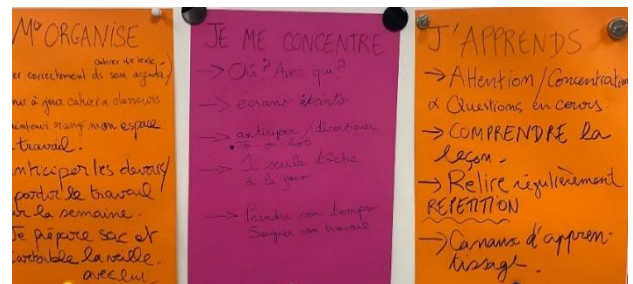 M'ORGANISE
cahier de texte,
er correctement ds son agenda/
à jour cahier n classeurs
rangé mon espace
travail.
nticiper les devoirs/
le travail
la semaine.
Je prépare sac et
cartable la veille.
avec lui.
JE ME CONCENTRE
→ Où? Avec qui?
→ écrans éteints
→ anticiper /
• To-do-list
→ 1 seule tâche
à la fois
→ Prendre son temps
Soigner son travail
J'APPRENDS
→ Attention/Concentration
& Questions en cours.
→ COMPRENDRE la
leçon.
→ Relire régulièrement
REPETITION
→ Canaux d'appren-
tissage.